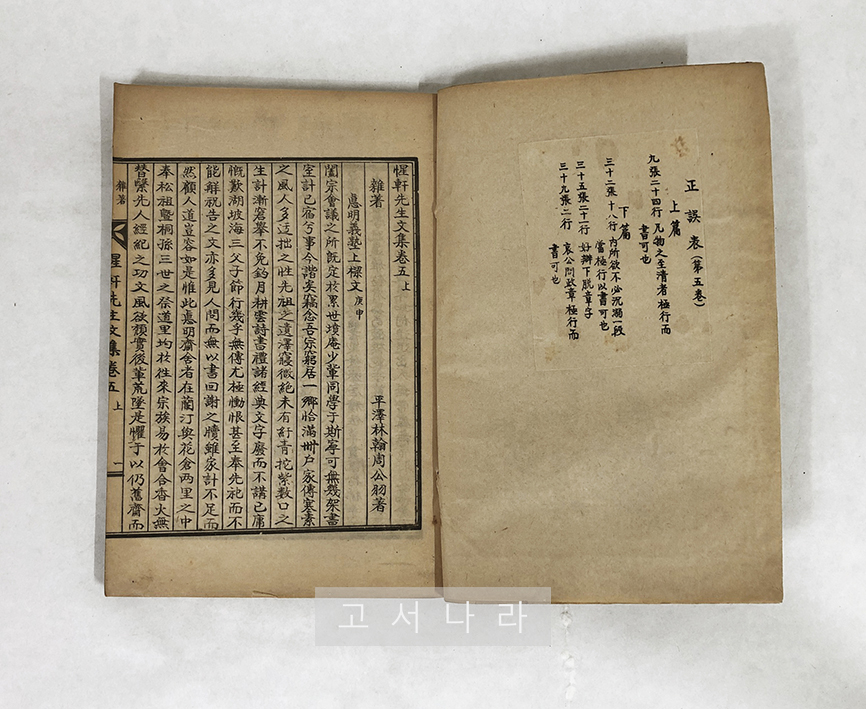 正誤表(第五卷)
上篇
九張二十四行 凡物之至清者極行而
書可也
下篇
三十二張十八行 內所欲不必沉溺一段
當極行以書可也
三十五張二十一行 好辯下脫章字
三十九張二行 哀公問政章極行而
書可也
惺軒先生文集卷五 上
平澤林翰周公羽著
雜著
惠明義塾上樑文 庚申
閤宗會議之所旣定於累世墳庵少輩同學于斯寧可無幾架書
室計已宿兮事今諧矣竊念吾宗窮居一鄕恰滿卌戶家傳寒素
之風人多迂拙之性先祖之遺澤寢微絶未有紆靑拕紫數口之
生計漸窘擧不免釣月耕雲詩書禮諸經典文字廢而不講已庸
慨歎湖坡海三父子節行幾乎無傳尤極慟恨甚至奉先祀而不
能解祝告之文亦多見人問而無以書回謝之牘雖家計不足而
然顧人道豈容如是惟此惠明齋舍者在蘭汀與花倉兩里之中
奉松祖曁桐孫三世之祭道里均於徃來宗族易於會合香火無
替緊先人經紀之功文風欲頹實後輩荒墜是懼于以仍舊齋而
雜著
惺軒先生文集卷五 上
一
고서나라